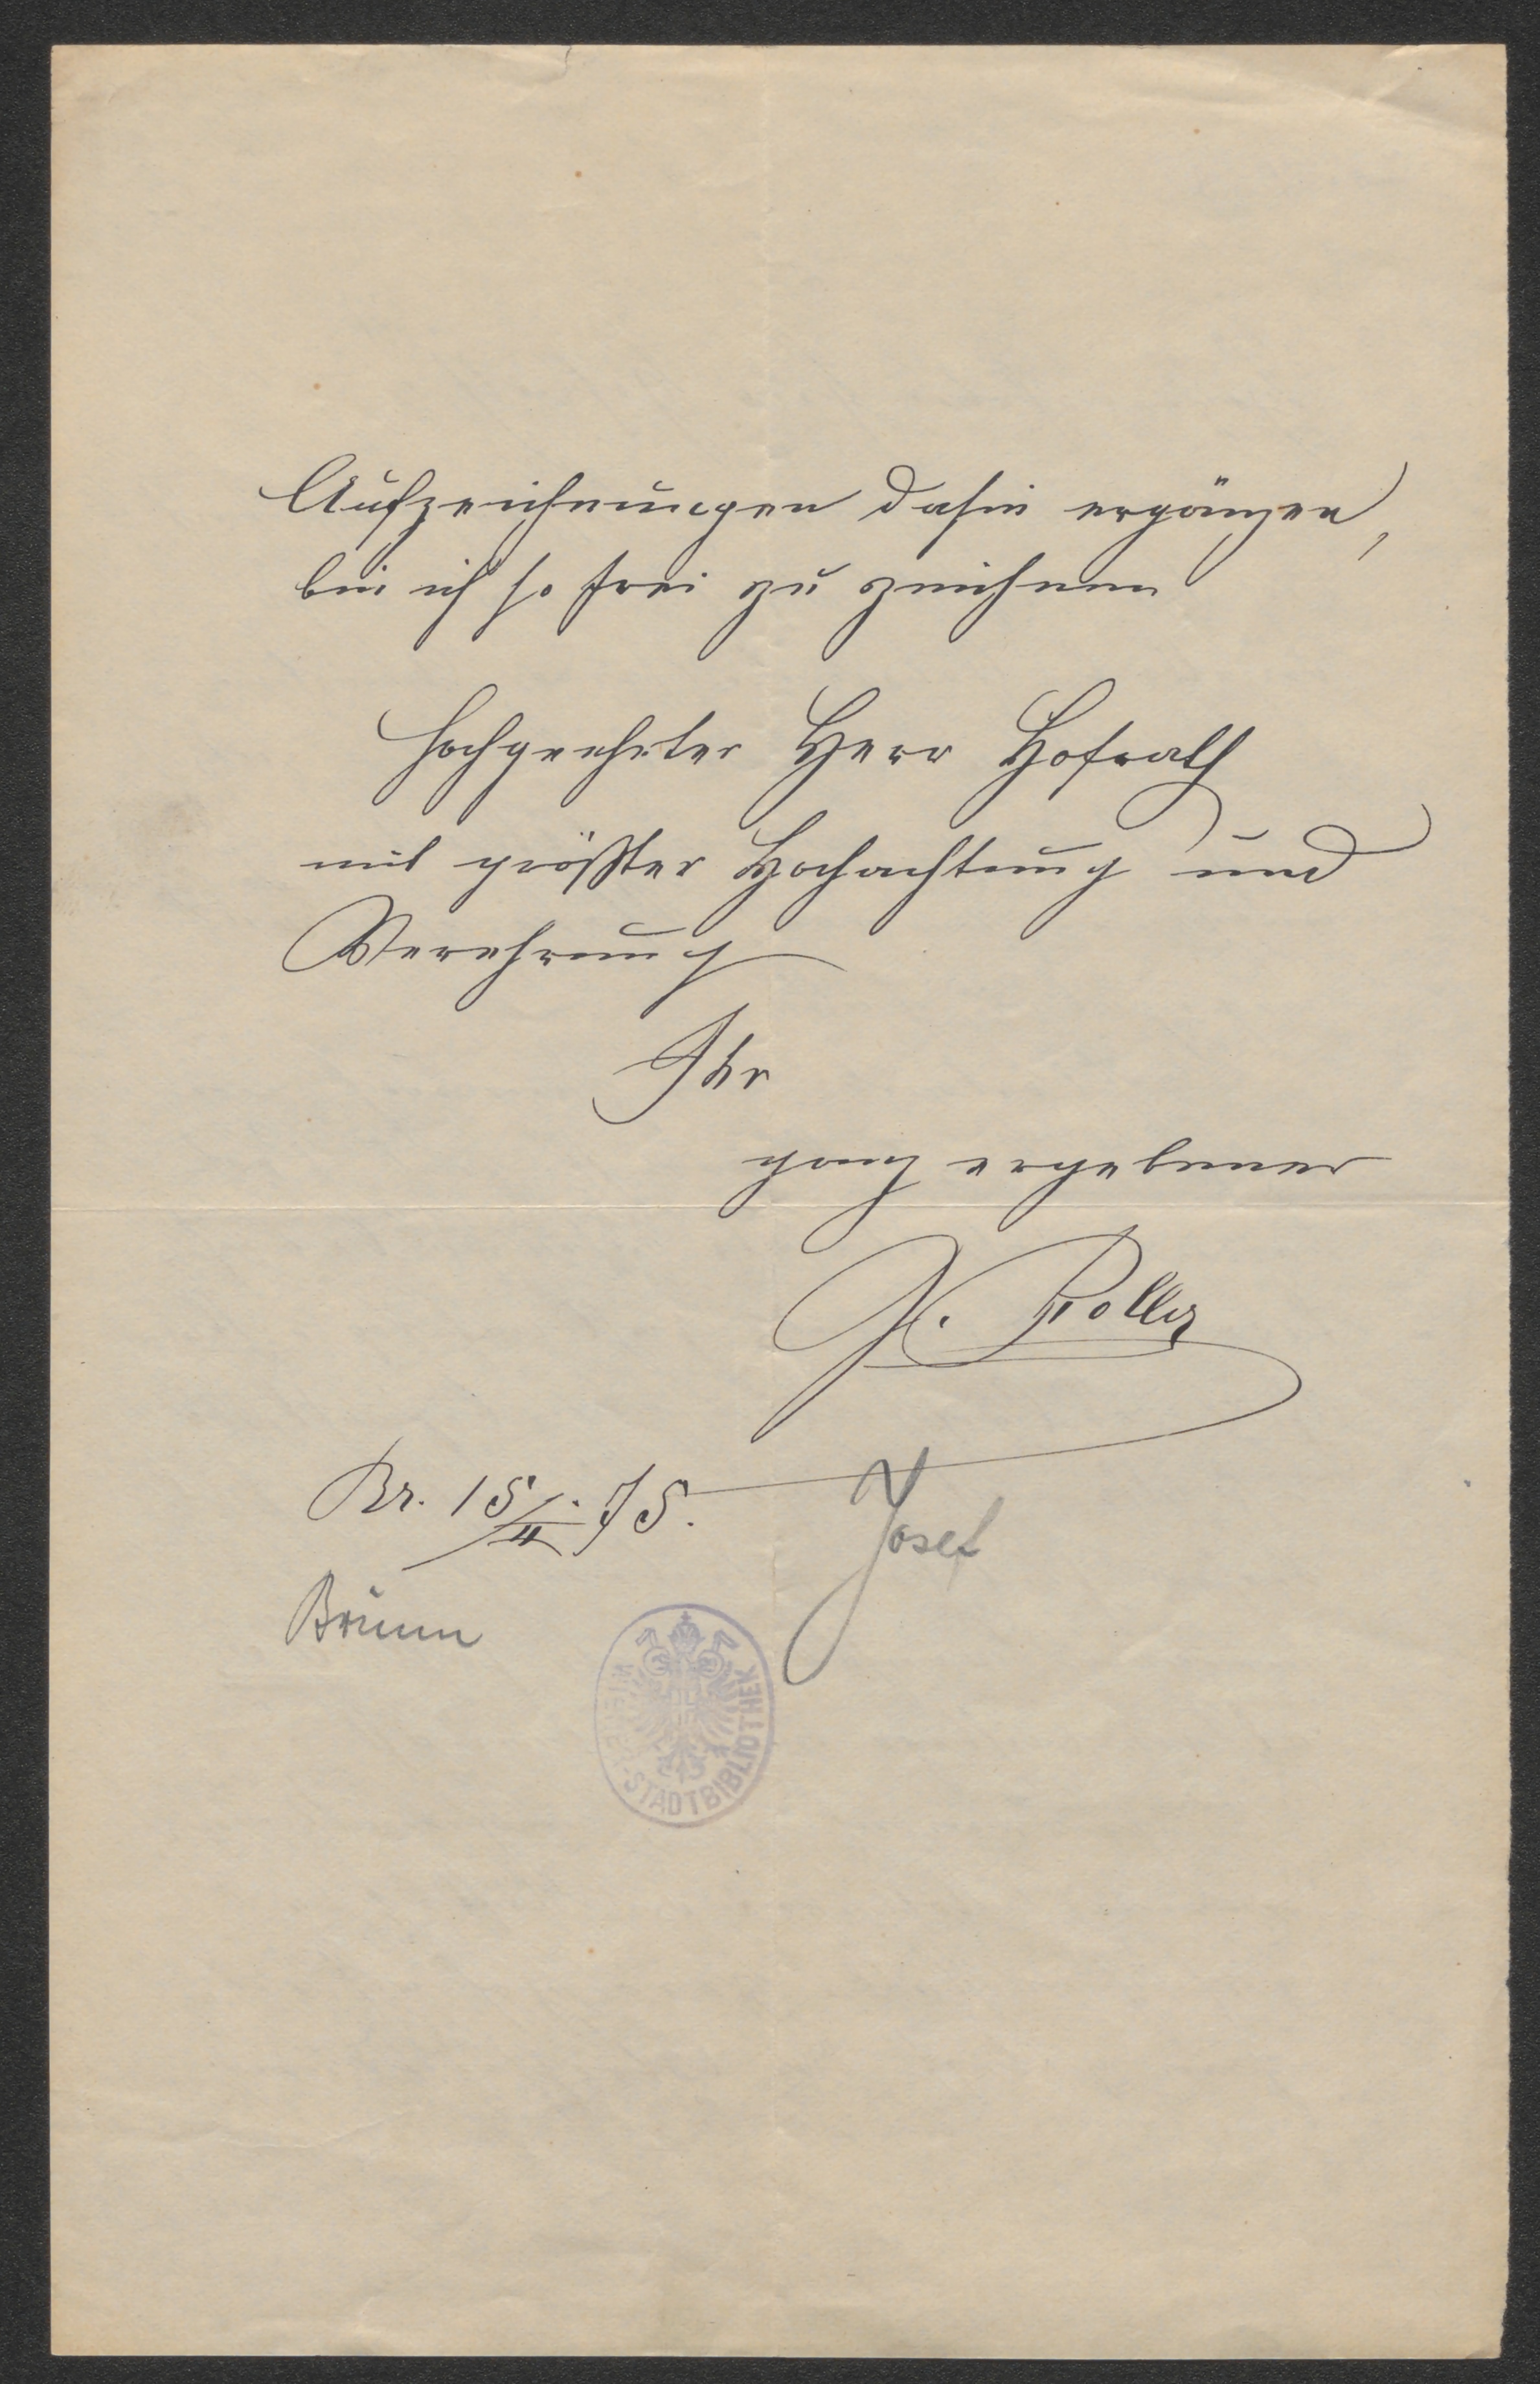 Aufzeichnungen dahin ergänzen,
bin ich so frei zu zeichnen
hochgeehrter Herr Hofrath
mit größter Hochachtung und
Verehrung
Ihr
ganz ergebener
J. Roller
Br. 15/II. 75.
Josef
Brünn
WIENER STADTBIBLIOTHEK